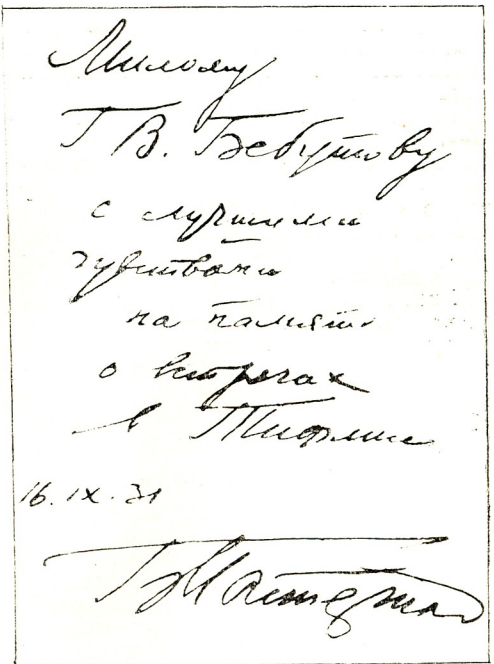 Милому
Г В. Бебутову
с лучшими
чувствами
на память
о встречах
в Тифлисе
16. IX. 31
БПастернак